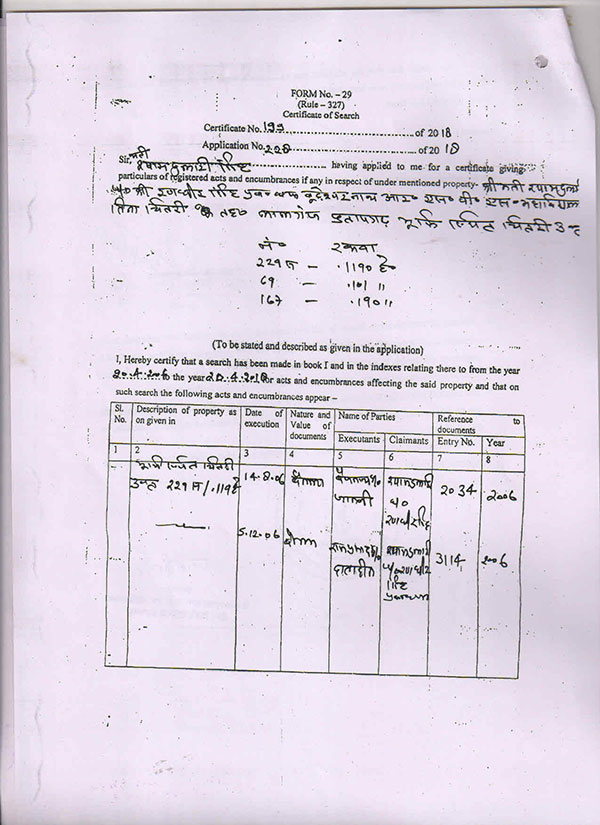 FORM No. – 29
(Rule – 327)
Certificate of Search
Certificate No. 199 of 2018
Application No. 228 of 2018
Sir, श्यामदुलारी सिंह having applied to me for a certificate giving
particulars of registered acts and encumbrances if any in respect of under mentioned property- श्रीमती श्यामदुलारी
श्री रणवीर सिंह
लालगंज प्रतापगढ़ भूमि स्थित
नं० रकबा
229ज – .1190 हे०
69 – .101 "
167 – .190 "
(To be stated and described as given in the application)
I, Hereby certify that a search has been made in book I and in the indexes relating there to from the year
20.4.2006 to the year 20.4.2018 for acts and encumbrances affecting the said property and that on
such search the following acts and encumbrances appear –
Sl. No. Description of property as on given in Date of execution Nature and Value of documents Name of Parties Reference to documents
Executants Claimants Entry No. Year
1 2 3 4 5 6 7 8
भूमि स्थित
229ज/.119हे 14-8-06 बैनामा श्यामदुलारी 2034 2006
5.12.06 बैनामा श्यामदुलारी 3114 2006
सिंह